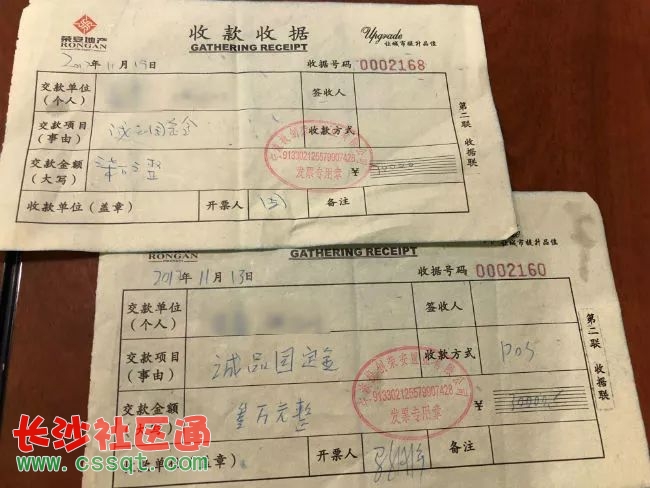 荣安地产
RONGAN
收款收据
GATHERING RECEIPT
Upgrade
让城市提升品位
年11月19日
收据号码 0002168
交款单位
(个人)
签收人
交款项目
(事由)
收款方式
交款金额
(大写)
整
¥
收款单位(盖章)
开票人
备注
第二联 收据联
913302125579907428
发票专用章
RONGAN
GATHERING RECEIPT
让城市提升品位
2017年11月13日
收据号码 0002160
交款单位
(个人)
签收人
交款项目
(事由)
诚品园定金
收款方式
POS
交款金额
万元整
¥
(盖章)
开票人
备注
第二联 收据联
913302125579907428
发票专用章
长沙社区通
www.cssqt.com